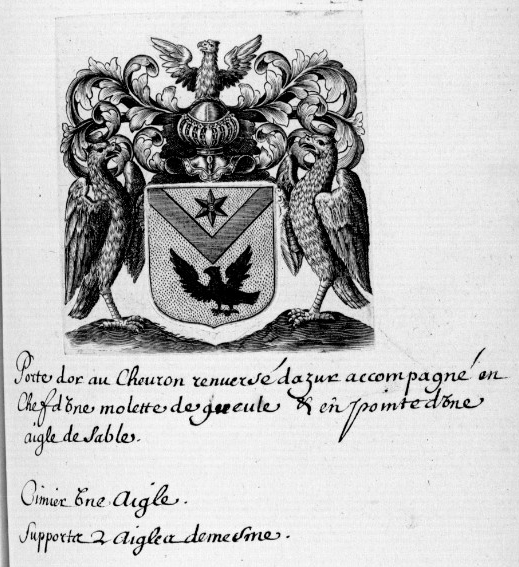 Porte dor au Cheuron renuersé dazur accompagné en
Chef d'vne molette de gueule & en pointe d'vne
aigle de sable.
Cimier vne Aigle.
Supports 2 Aigles demesme.